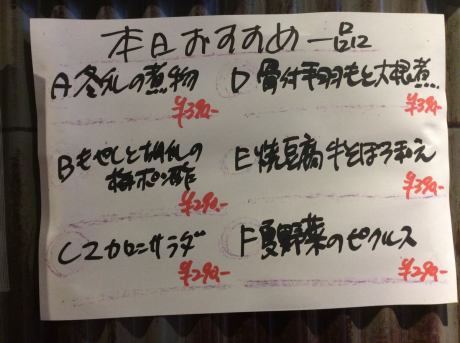 本日おすすめ一品
A冬瓜の煮物
¥390-
Bもやしと胡瓜の
梅ポン酢
¥290.-
Cマカロニサラダ
¥290.-
D骨付手羽もと大根煮
¥390-
E焼豆腐牛そぼろ和え
¥390-
F夏野菜のピクルス
¥290.-